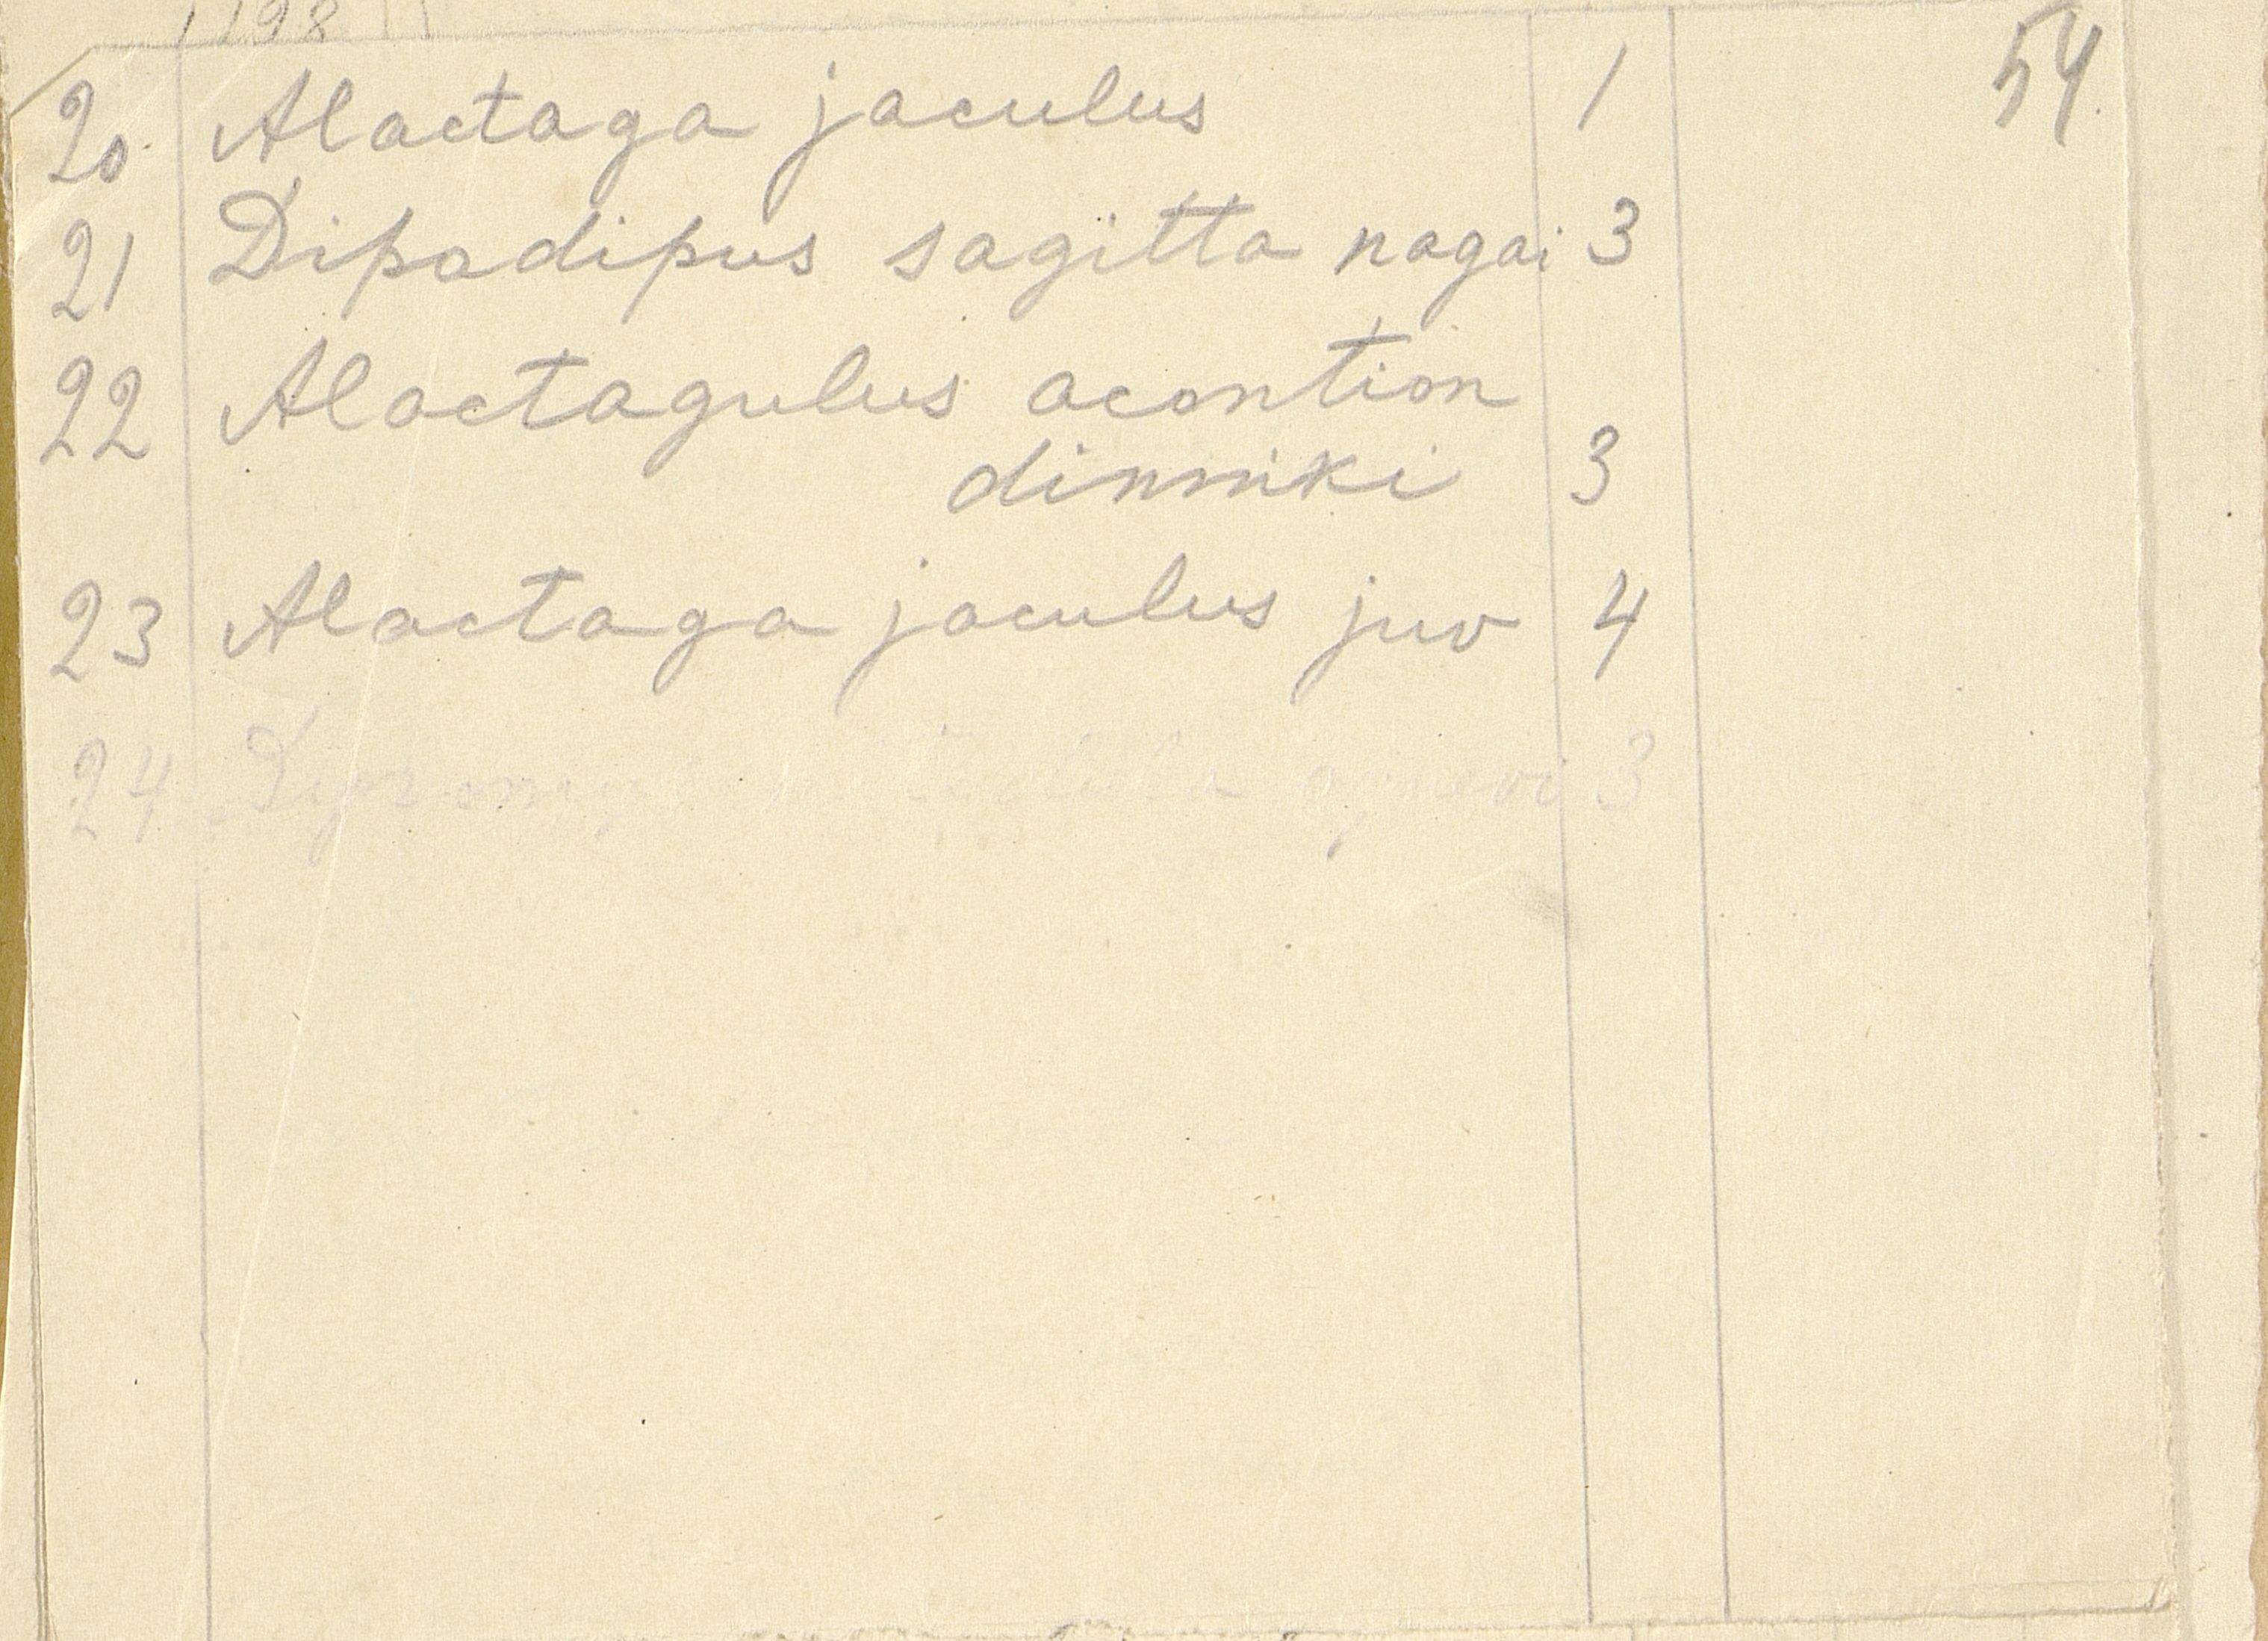 1198
54
20 Alactaga jaculus 1
21 Dipodipus sagitta nagai 3
22 Alactagulus acontion
dinniki 3
23 Alactaga jaculus juv 4
24 3